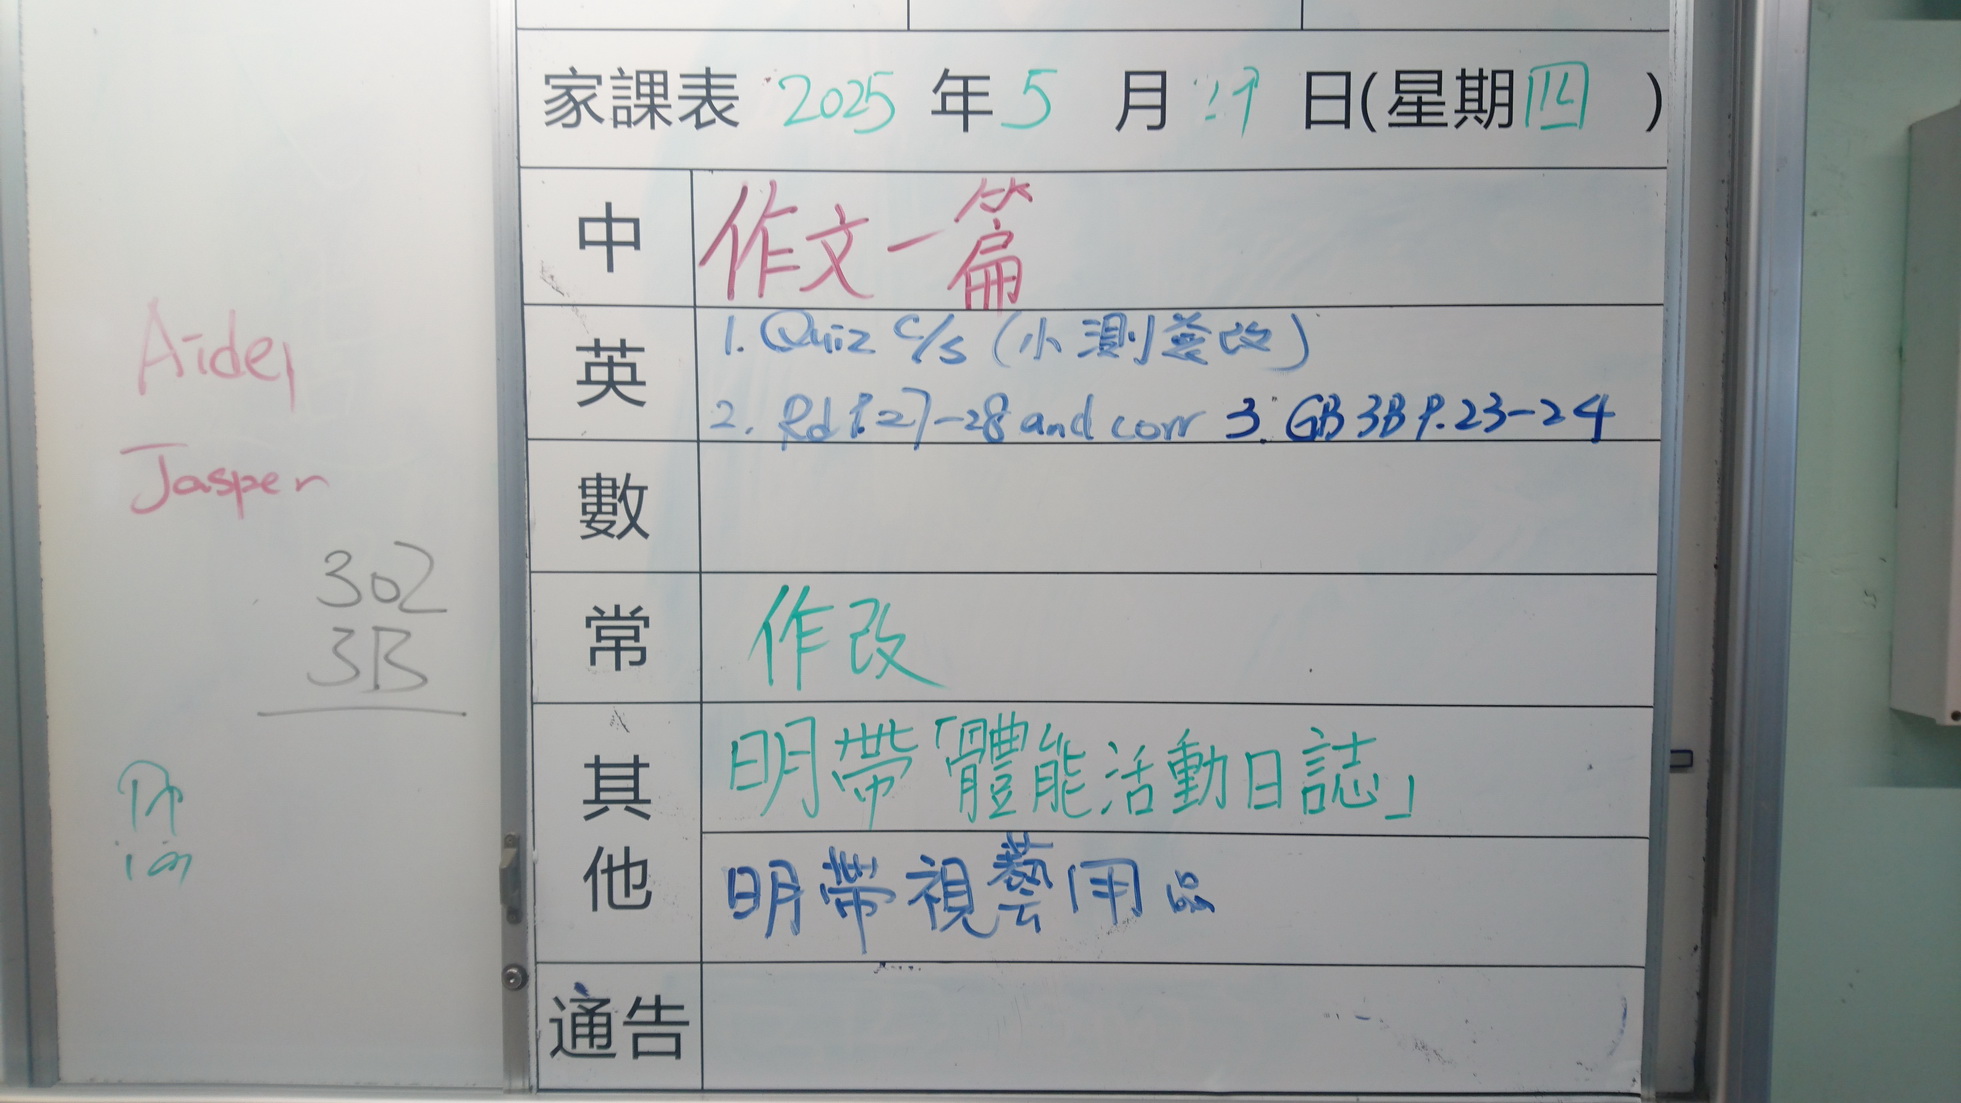 家課表 2025 年 5 月 29 日(星期四)
中 作文一篇
英 1. Quiz c/s (小測簽改)
2. Rd P.27-28 and corr 3. GB 3B P.23-24
數
常 作改
其他 明帶「體能活動日誌」
明帶視藝用品
通告
Jasper
302
3B